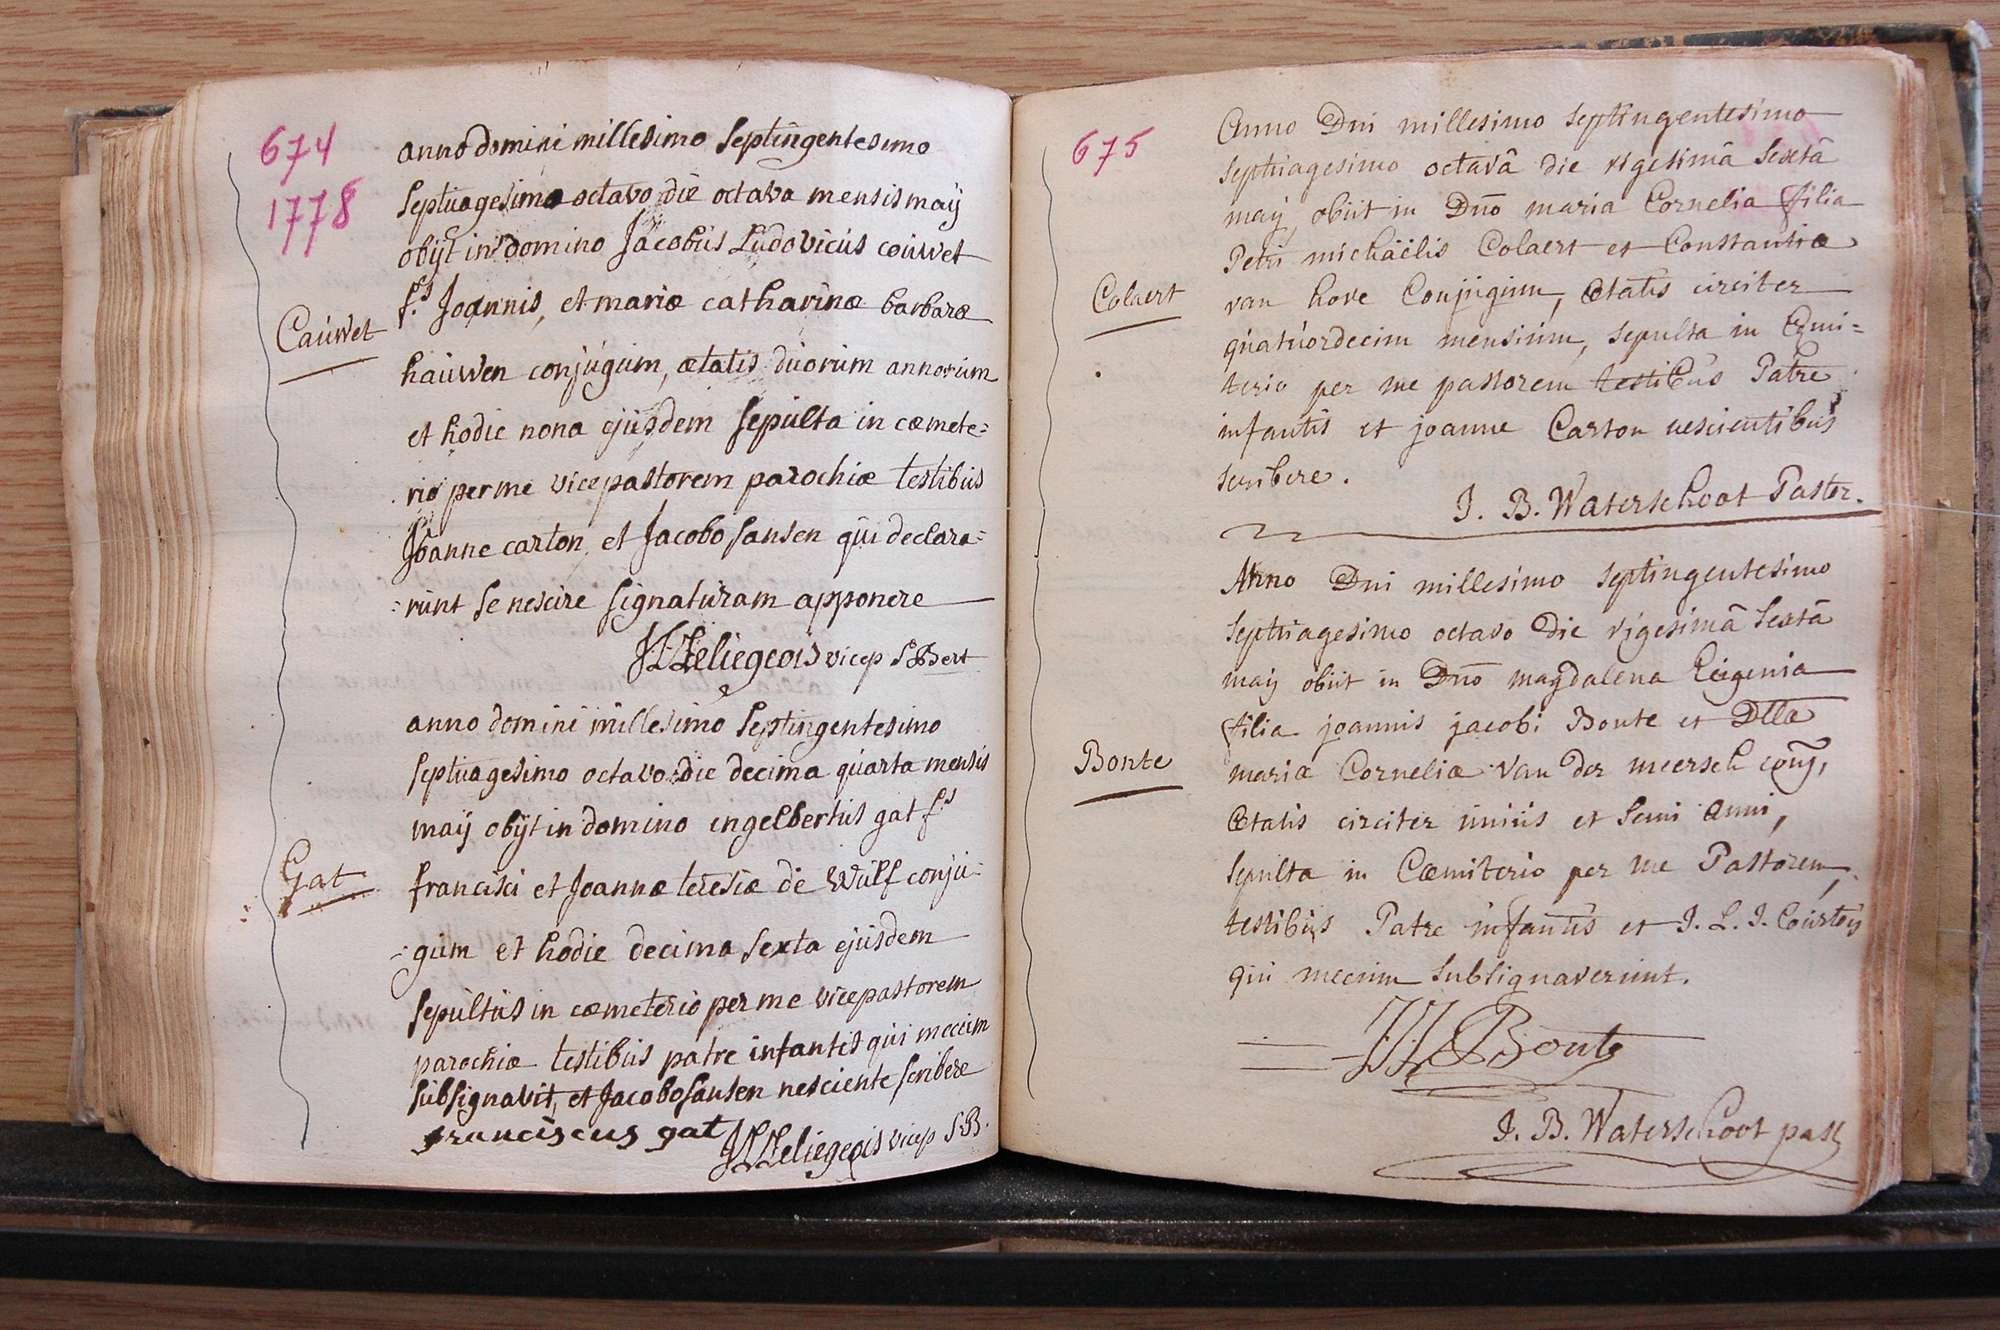 674
1778
anno domini millesimo septingentesimo
septuagesimo octavo die octava mensis maÿ
obÿt in domino Jacobus Ludovicus couwet
Cauwet
f.s Joannis, et mariæ catharinæ barbaræ
hauwen conjugum, ætatis duorum annorum
et hodie nona ejusdem sepulta in cæmete=
rio per me vicepastorem parochiæ testibus
Joanne carton, et Jacobo sansen qui declara=
=runt se nescire signaturam apponere
vicep S Bert
anno domini millesimo septingentesimo
septuagesimo octavo die decima quarta mensis
maÿ obÿt in domino engelbertus gat f.s
Gat
francisci et Joannæ teresiæ de Wulf conju=
=gum et hodie decima sexta ejusdem
sepultus in cæmeterio per me vicepastorem
parochiæ testibus patre infantis qui mecum
subsignavit, et Jacobo sansen nesciente scribere
franciscus gat
vicep S.B.
675
Anno Dni millesimo septingentesimo
septuagesimo octavâ die vigesimâ sextâ
maÿ, obiit in Dño maria Cornelia filia
Petri michäelis Colaert et Constantiæ
Colaert
van hove Conjugum, ætatis circiter
quatuordecim mensium, sepulta in Cœmi=
terio per me pastorem testibus Patre
infantis et joanne Carton nescientibus
scribere.
J. B. Waterschoot Pastor.
Anno Dni millesimo septingentesimo
septuagesimo octavo die vigesimâ sextâ
maÿ obiit in Dño magdalena Eugenia
filia joannis jacobi Bonte et Dlla
Bonte
maria Cornelia Van der meersch conj,
ætatis circiter unius et semi anni,
sepulta in Cœmiterio per me Pastorem,
testibus Patre infantis et J. L. J. Courtois
qui mecum subsignaverunt.
Bonte
J. B. Waterschoot past